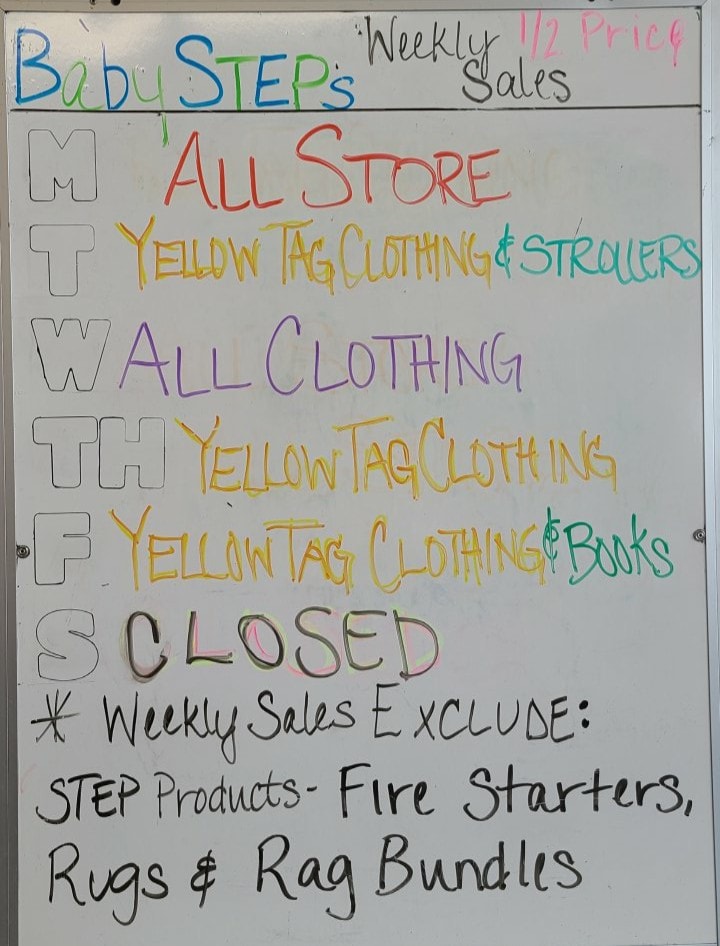 Baby STEPs Weekly Sales 1/2 Price
M ALL STORE
T YELLOW TAG CLOTHING & STROLLERS
W ALL CLOTHING
TH YELLOW TAG CLOTHING
F YELLOW TAG CLOTHING & BOOKS
S CLOSED
* Weekly Sales EXCLUDE:
STEP Products - Fire Starters,
Rugs & Rag Bundles